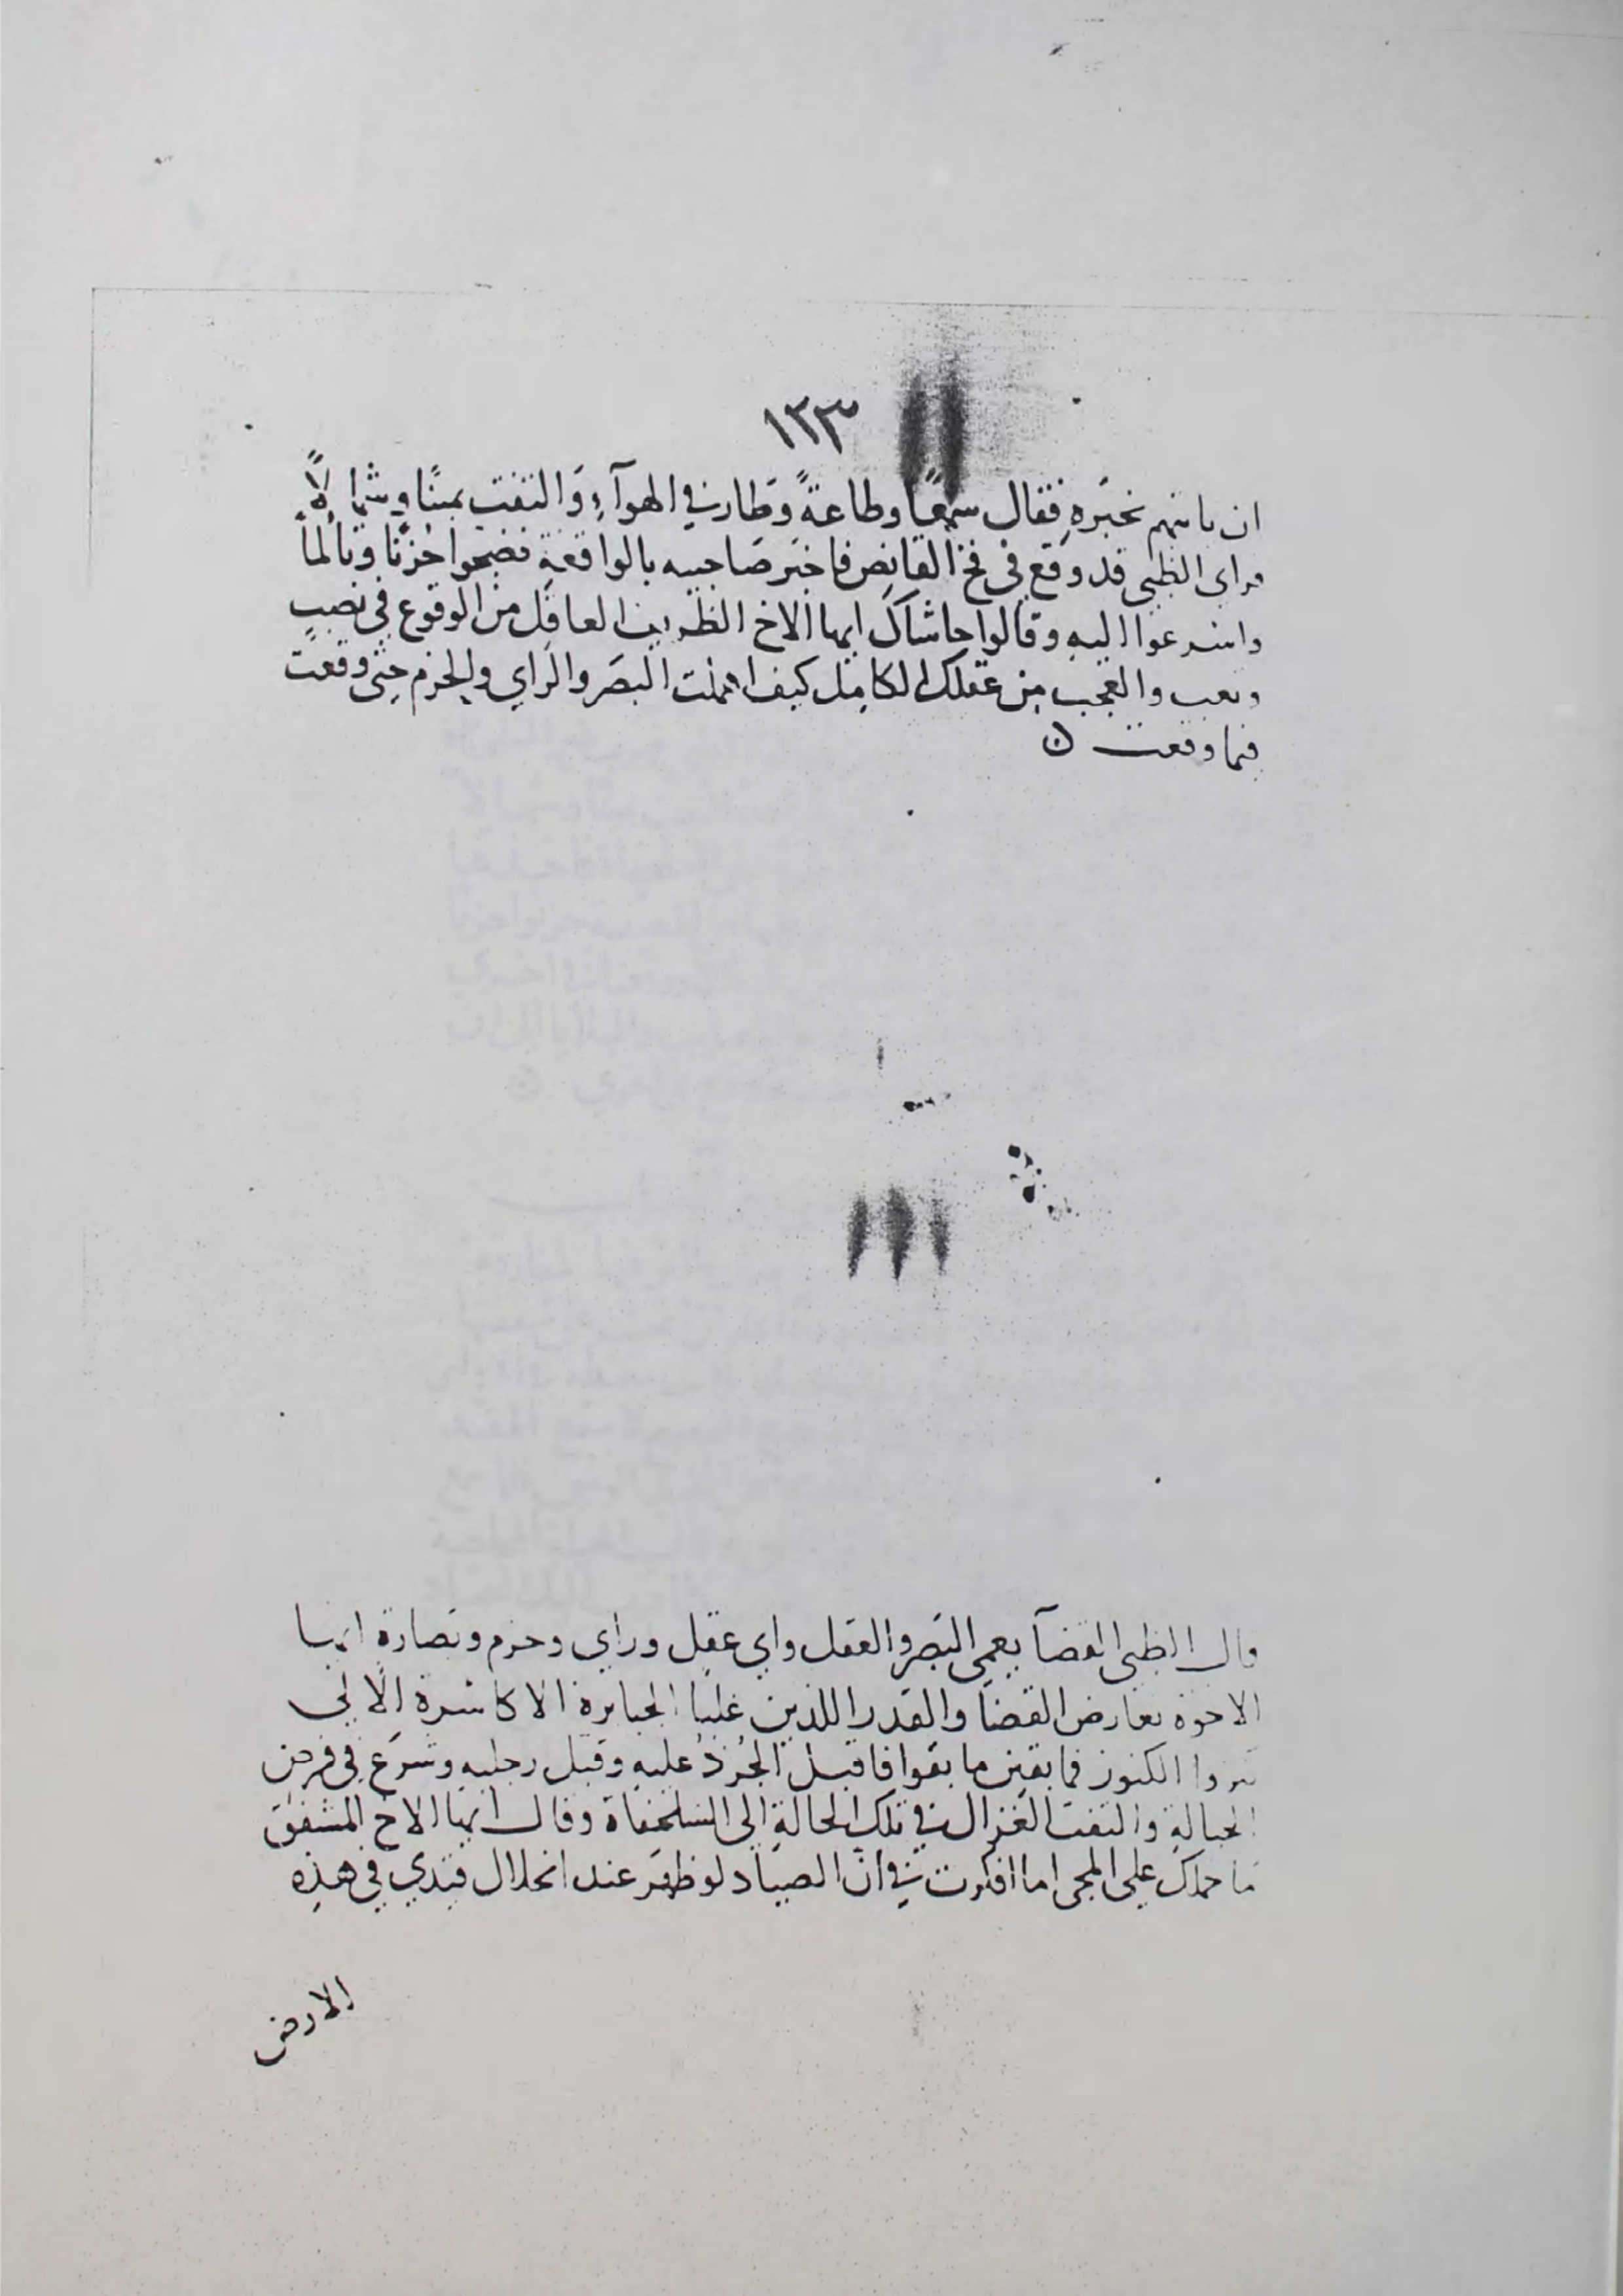 ١٢٣
ان ياتيهم بخبره فقال سمعًا وطاعةً وطار في الهوآءِ والتفت يمينًا وشمالاً
فراى الظبى قد وقع في فخ القانص فاخبر صاحبيه بالواقعةِ فضجوا حُزنًا وتألماً
واسرعوا اليهِ وقالوا حاشاكَ ايها الاخ الظريف العاقل من الوقوع في نصبٍ
وتعب والعجب من عقلك الكامل كيف اهملت البصَر والراي والحزم حتى وقعت
فيما وقعت ن
قال الظبى القضآ يعمى البَصر والعقل واي عقل وراي وحزم وبصارة ايها
الاخوه يعارض القضآ والقدر اللذين غلبا الجبابرة الاكاسرة الالى
الكنوز فما بقين ما بقوا فاقبل الجُرذ عليهِ وقبل رجليهِ وشرع في قرض
الحبالةِ والتفت الغزال في تلك الحالةِ الى السلحفاة وقال ايها الاخ المشفق
ما حملك على المجى اما افكرت في ان الصياد لو ظهر عند انحلال قيدي في هذه
الارض